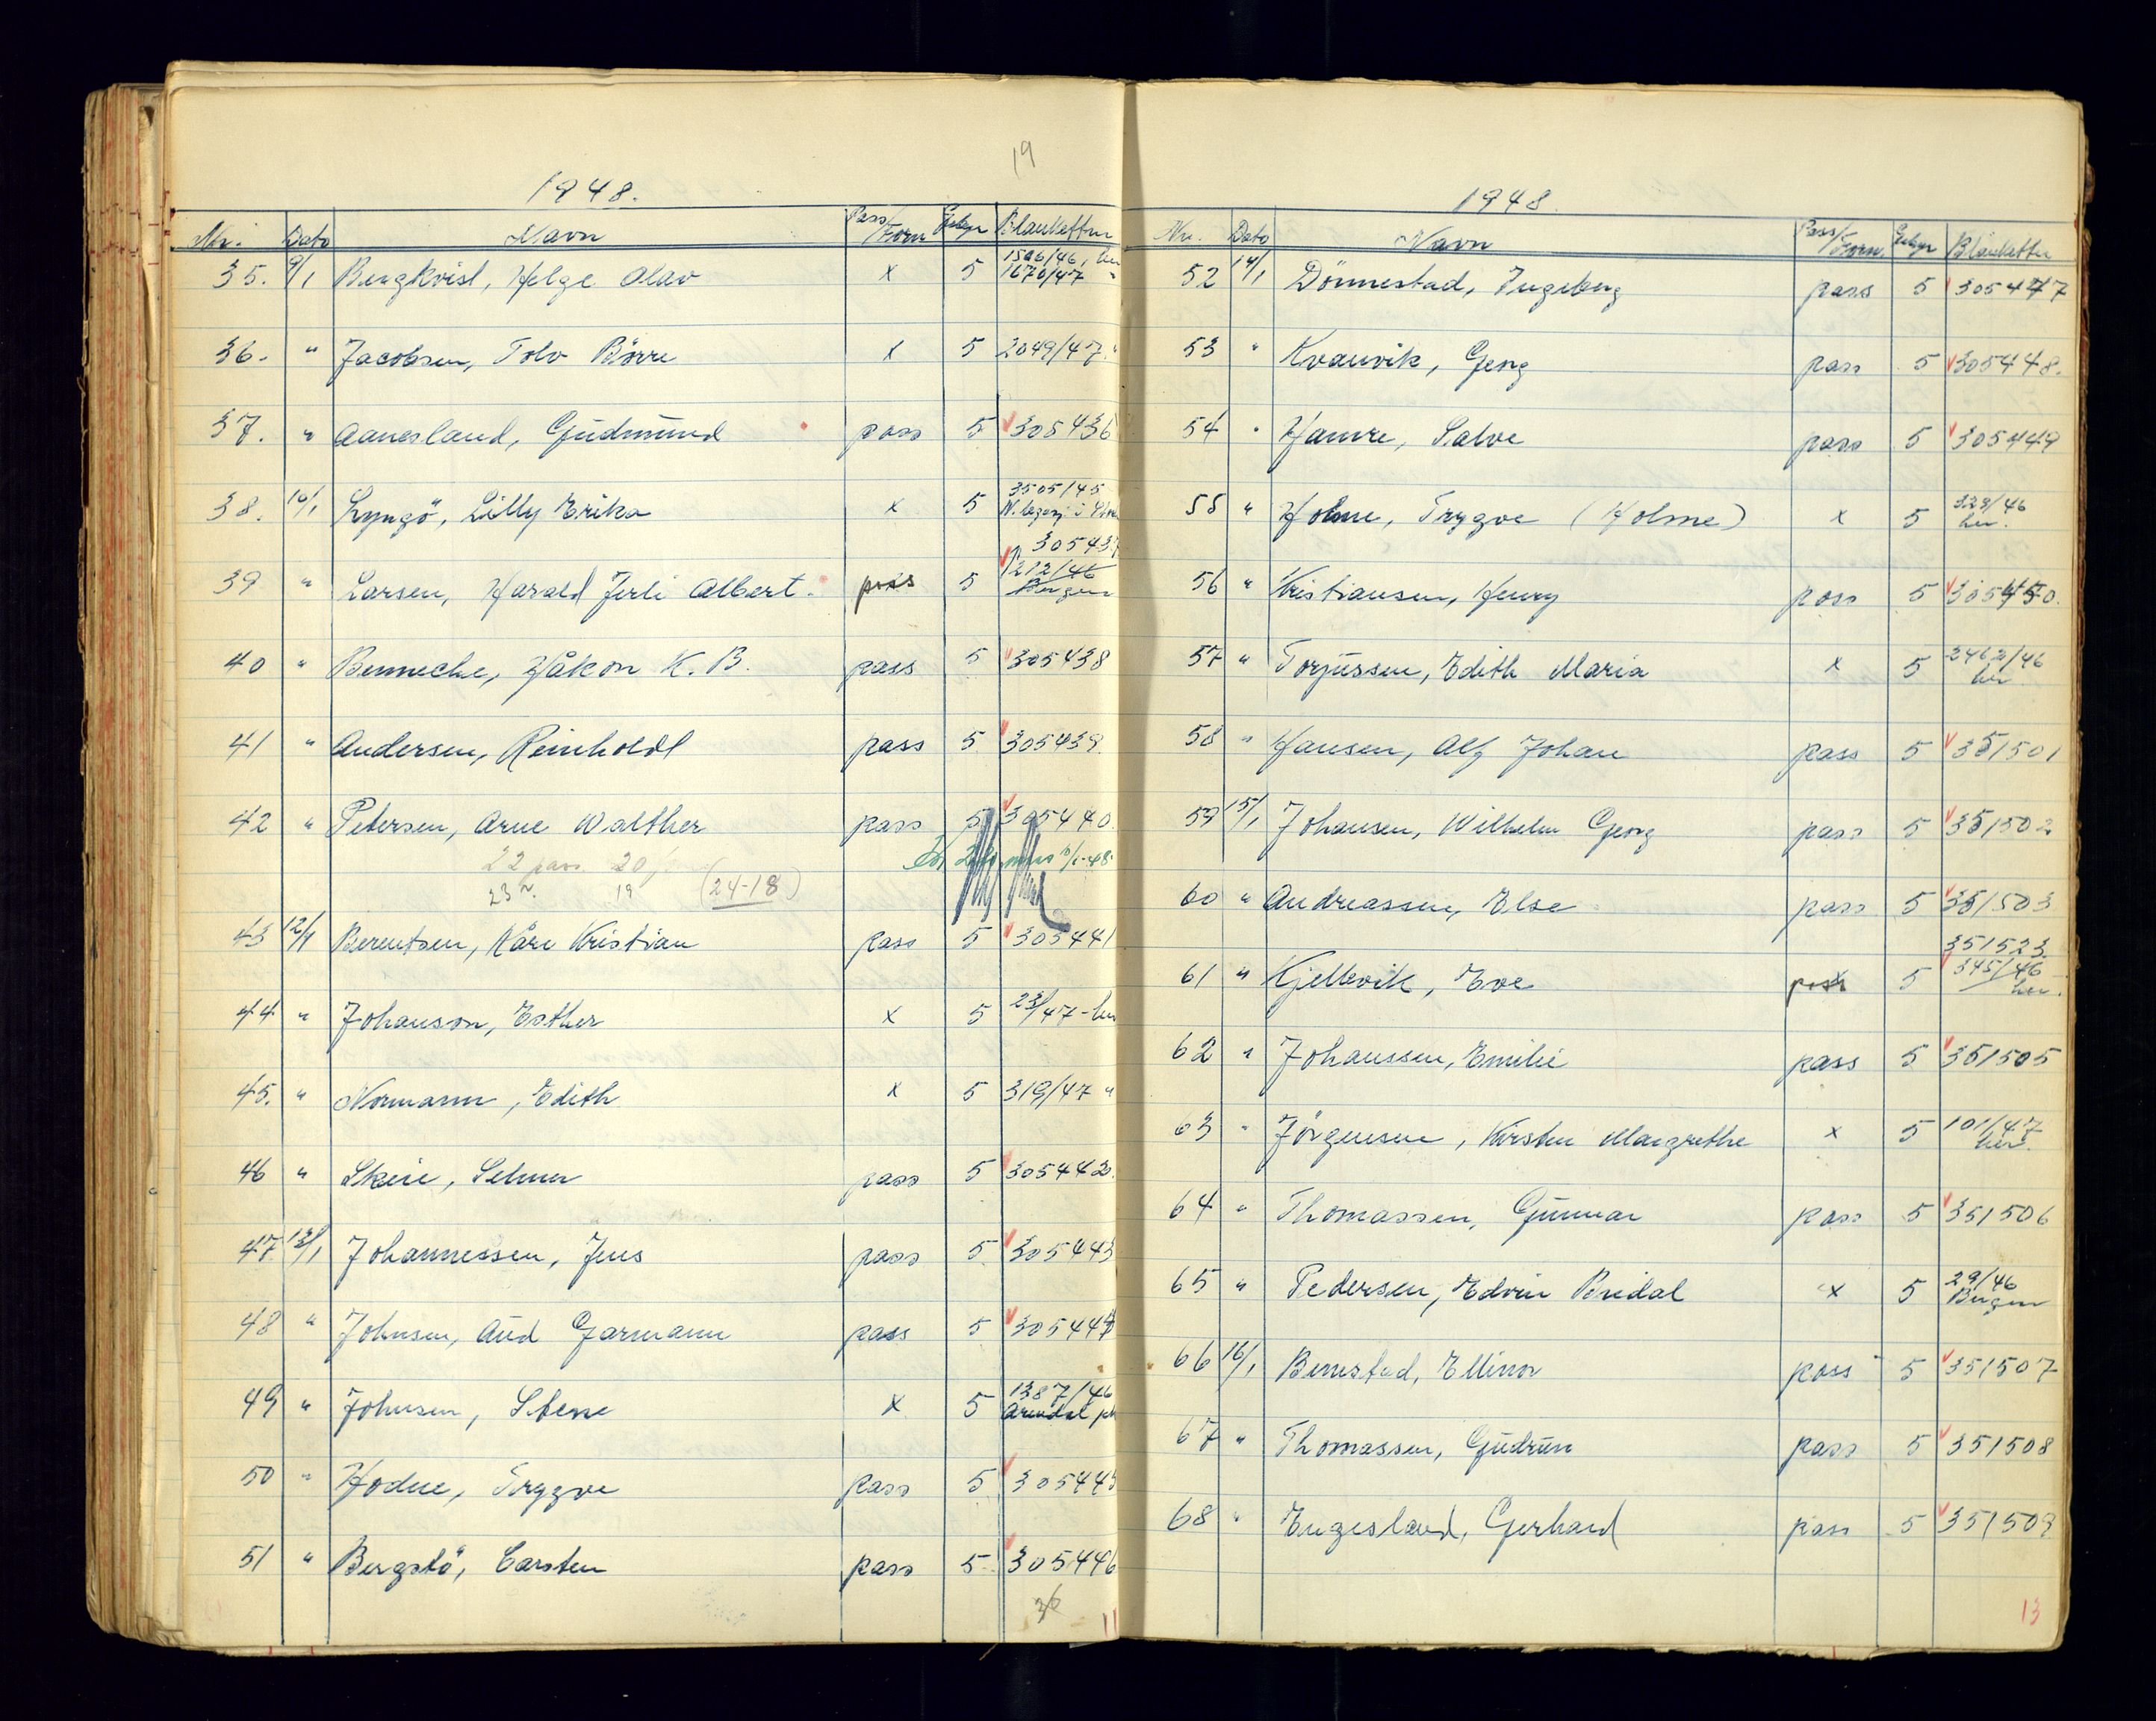 19
1948.
Nr. Dato Navn Pass/Forn Gebyr Blankettnr
1506/46, her
35. 9/1 Bergkvist, Helge Olav x 5 1670/47 "
36. " Jacobsen, Tolv Börre x 5 2049/47. "
37. " Aanesland, Gudmund pass 5 305436
3505/45
38. 10/1 Lyngö, Lilly Erika x 5 N. legasj i
305437
39 " Larsen, Harald Jerli Albert. pass 5 1212/46
Bergen
40 " Bennecke, Håkon K. B. pass 5 305438
41 " Andersen, Reinholdt pass 5 305439
42 " Petersen, Arne Walther pass 5 305440
22 pass 20
10/1-48.
23 19 (24-18)
43 12/1 Berentsen, Kåre Kristian pass 5 305441
44 " Johanson, Esther x 5 23/47 - her
45. " Normann, Edith x 5 319/47 "
46 " Skeie, Selmer pass 5 305442
47 13/1 Johannessen, Jens pass 5 305443
48 " Johnsen, Aud Garmann pass 5 305444
1387/46
49 " Johnsen, Stene x 5 Arendal pk
50 " Hodne, Trygve pass 5 305445
51 " Bergstö, Carsten pass 5 305446
36
11
1948
Nr. Dato Navn Pass/Forn. Gebyr Blankettnr
52 14/1 Dönnestad, Ingeborg pass 5 305447
53 " Kvanvik, Georg pass 5 305448.
54 " Hamre, Salve pass 5 305449
55 " Holme, Trygve (Holme) x 5 323/46
her.
56 " Kristiansen, Henry pass 5 305450.
57 " Torjussen, Edith Maria x 5 2462/46
her
58 " Hansen, Alf Johan pass 5 351501
59 15/1 Johansen, Wilhelm Georg pass 5 351502
60 " Andreassen, Else pass 5 351503
351523
61 " Kjellevik, Eve pass 5 345/46
her.
62 " Johanssen, Emilie pass 5 351505
63 " Jörgensen, Kirsten Margrethe x 5 101/47
her.
64 " Thomassen, Gunnar pass 5 351506
65 " Pedersen, Edvin Bredal x 5 29/46
Bergen
66 16/1 Benestad, Ellinor pass 5 351507
67 " Thomassen, Gudrun pass 5 351508
68 " Engesland, Gerhard pass 5 351509
13